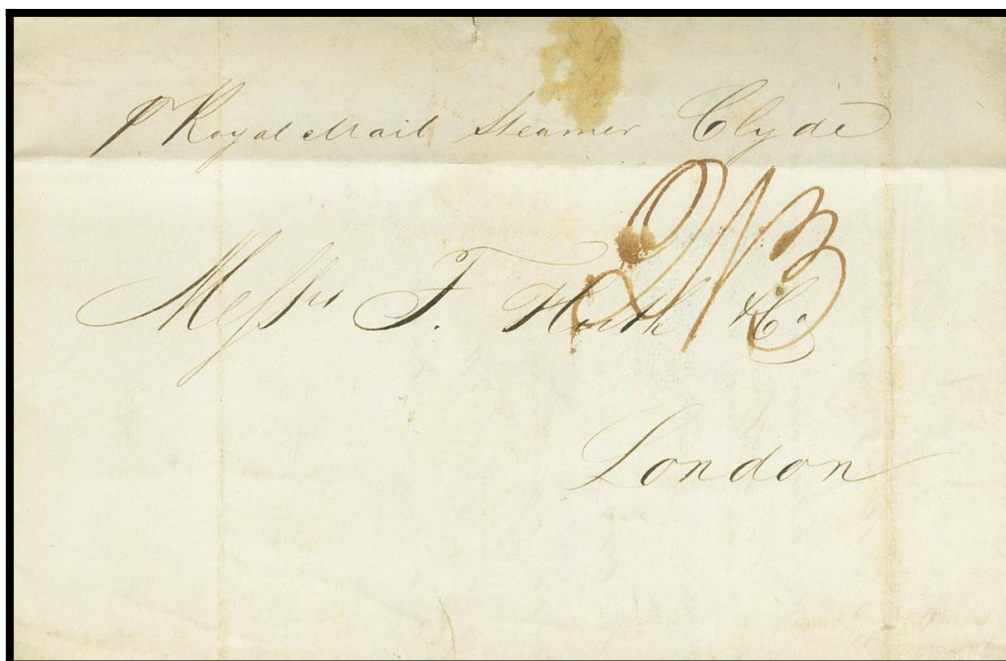 p Royal Mail Steamer Clyde
2/3
Messrs F. Huth & Co.
London